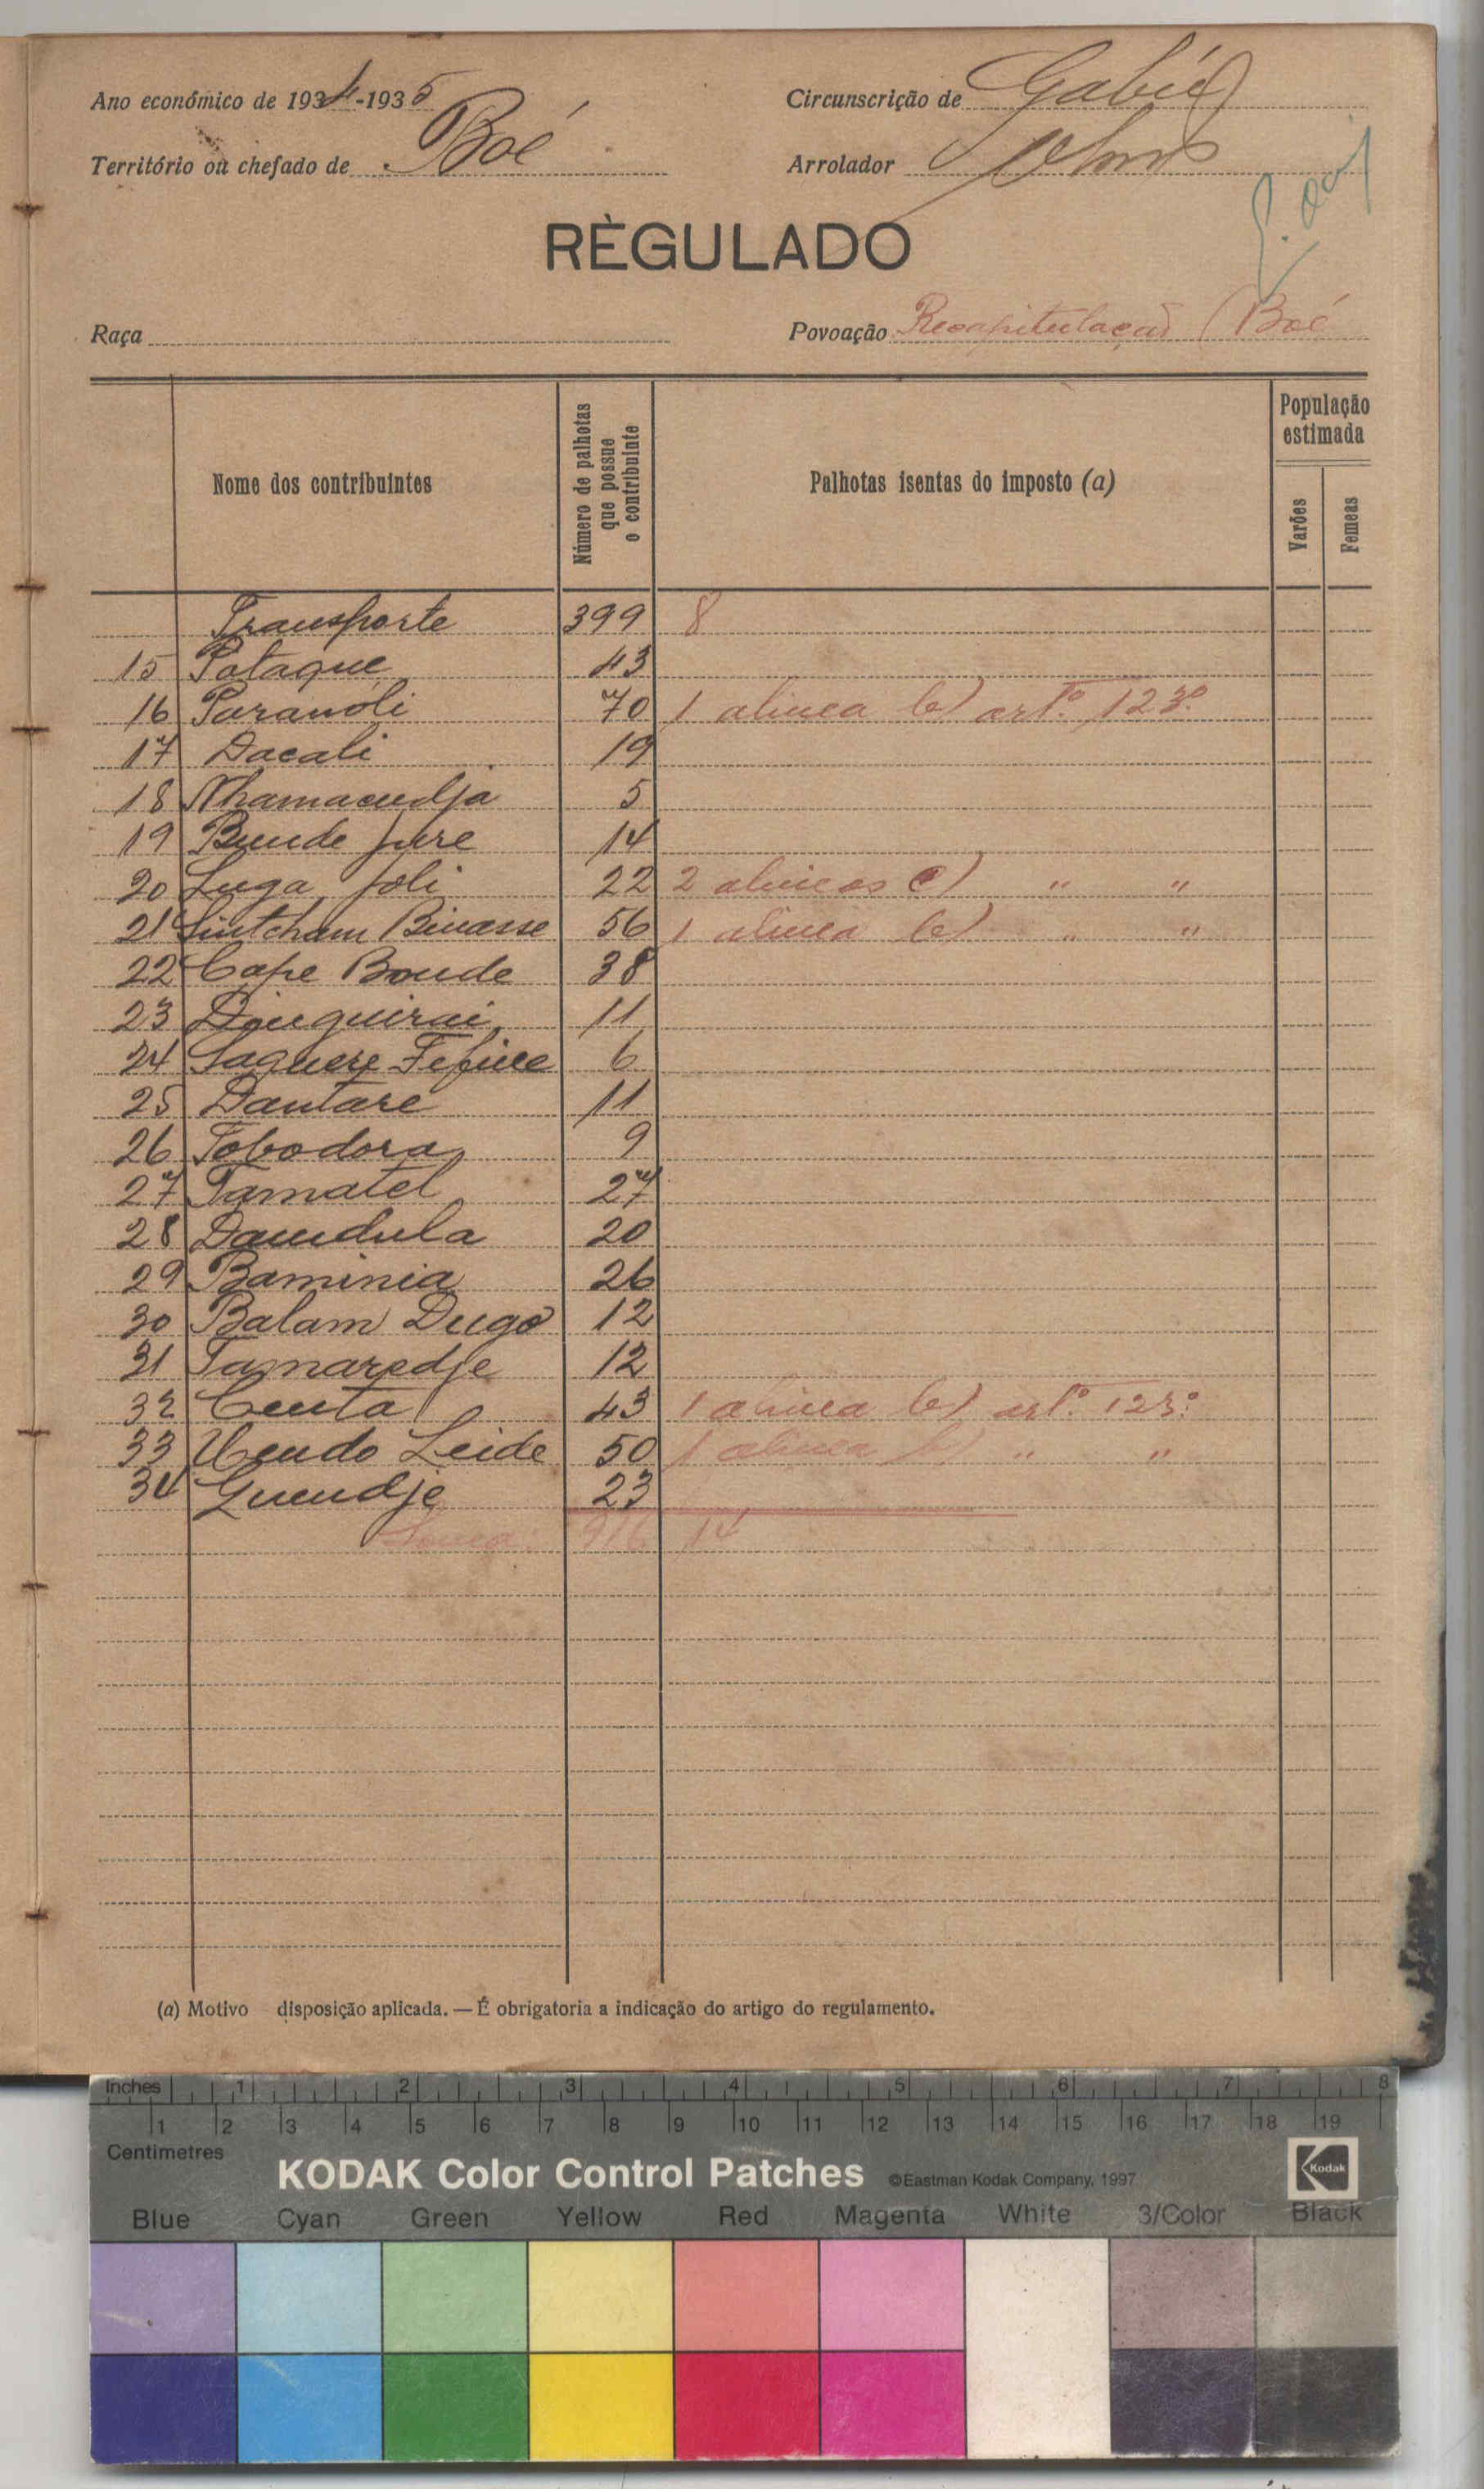 Ano económico de 1934-1935
Circunscrição de Gabú
Território ou chefado de Boé
Arrolador
RÈGULADO
Raça
Povoação Recapitulação (Boé
Nome dos contribuintes
Número de palhotas que possue o contribuinte
Palhotas isentas do imposto (a)
População estimada
Varões
Femeas
Transporte 399 8
15 Pataque 43
16 Paranoli 70 1 alinea b) artº. 123º
17 Dacali 19
18 Nhamacudja 5
19 Bunde Jure 14
20 Luga Joli 22 2 alineas c) " "
21 Sintcham Binasse 56 1 alinea b) " "
22 Cape Bonde 38
23 Dinguirai 11
24 Saguere 6
25 Dantare 11
26 Tobodora 9
27 Tamatel 27
28 Dandula 20
29 Baminia 26
30 Balam Dugo 12
31 Tamaredje 12
32 Ceuta 43 1 alinea b) artº. 123º
33 Uendo Leide 50 1 alinea b) " "
34 Guendje 23
Soma: 916 14
(a) Motivo disposição aplicada. — É obrigatoria a indicação do artigo do regulamento.
Inches 1 2 3 4 5 6 7 8
1 2 3 4 5 6 7 8 9 10 11 12 13 14 15 16 17 18 19
Centimetres
KODAK Color Control Patches ©Eastman Kodak Company, 1997 Kodak
Blue Cyan Green Yellow Red Magenta White 3/Color Black